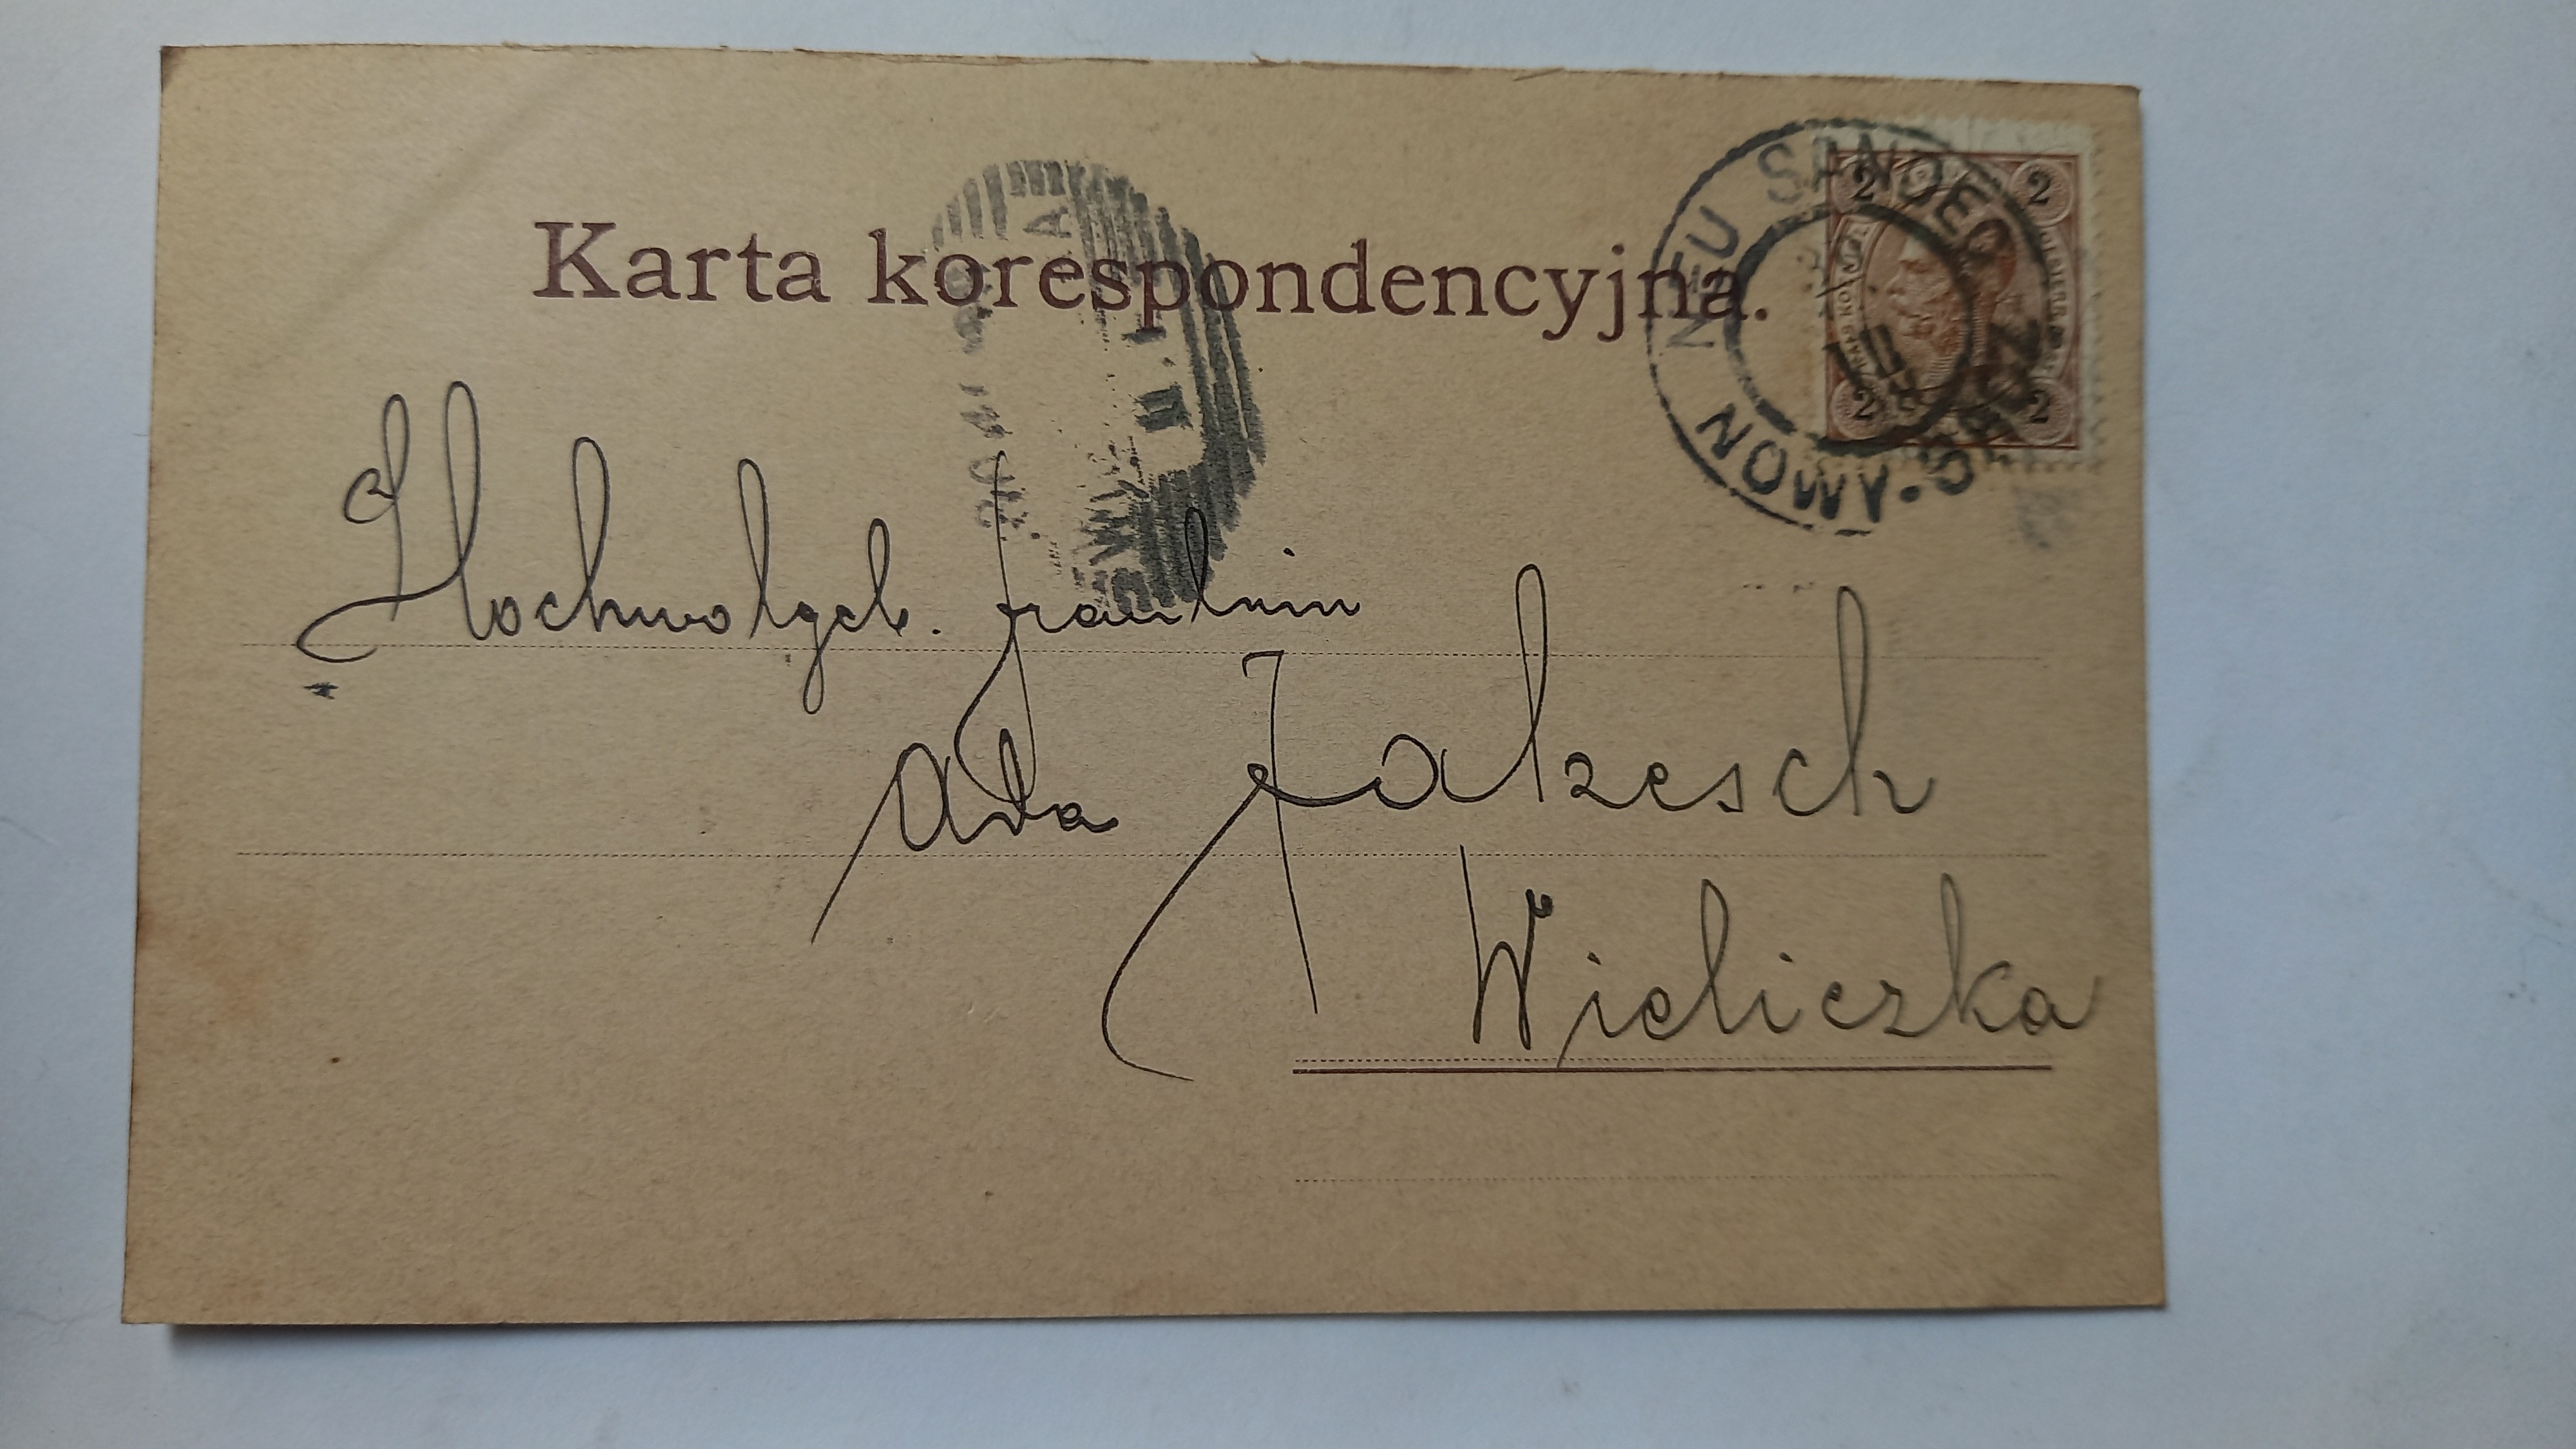 Karta korespondencyjna.
NEU SANDEC
NOWY-SĄCZ
2 2
2 2
Hochwolgeb. fraulein
Ada Jakesch
Wieliczka